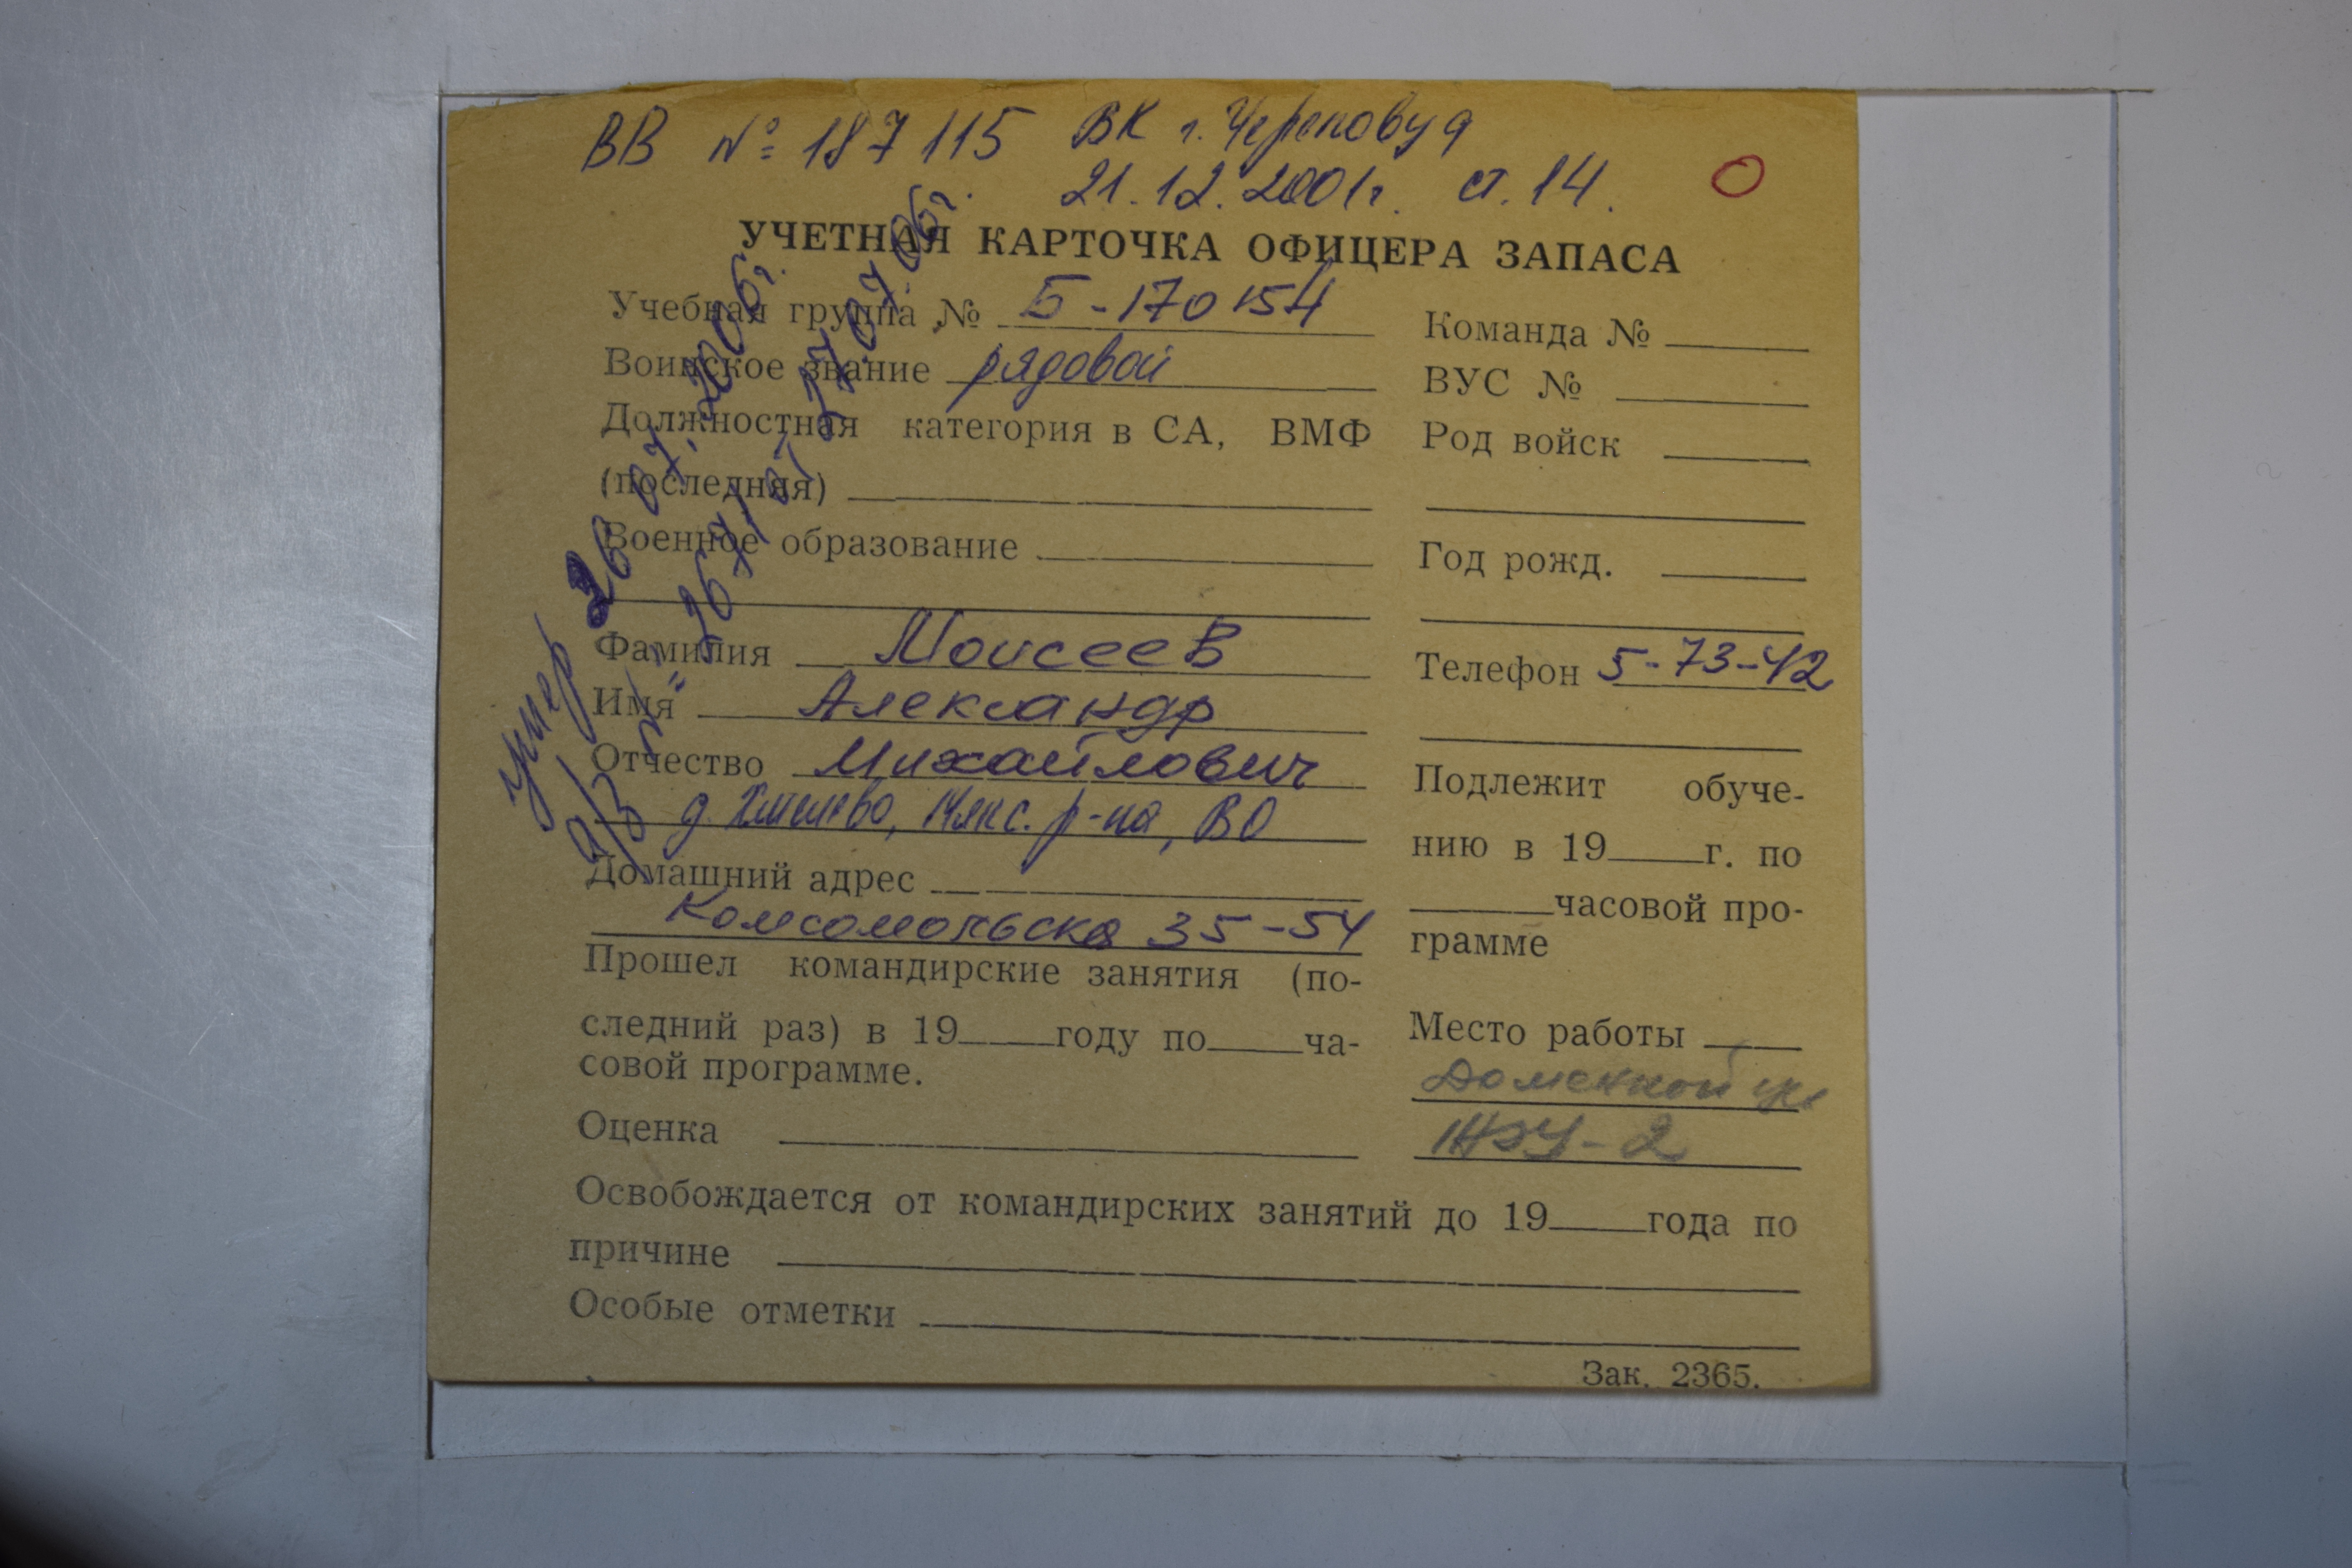 ВВ № 187115 ВК г. Череповца
21.12.2001г. ст. 14.
О
УЧЕТНАЯ КАРТОЧКА ОФИЦЕРА ЗАПАСА
Учебная группа № Б-170154
Воинское звание рядовой
Должностная категория в СА, ВМФ
(последняя)
Военное образование
Фамилия Моисеев
Имя Александр
Отчество Михайлович
р-на, ВО
Домашний адрес
Комсомольска 35-54
Прошел командирские занятия (по-
следний раз) в 19 году по ча-
совой программе.
Оценка
Команда №
ВУС №
Род войск
Год рожд.
Телефон 5-73-42
Подлежит обуче-
нию в 19 г. по
часовой про-
грамме
Место работы
Доменной
ЖЭУ-2
Освобождается от командирских занятий до 19 года по
причине
Особые отметки
Зак. 2365.
умер 26.07.2006г.